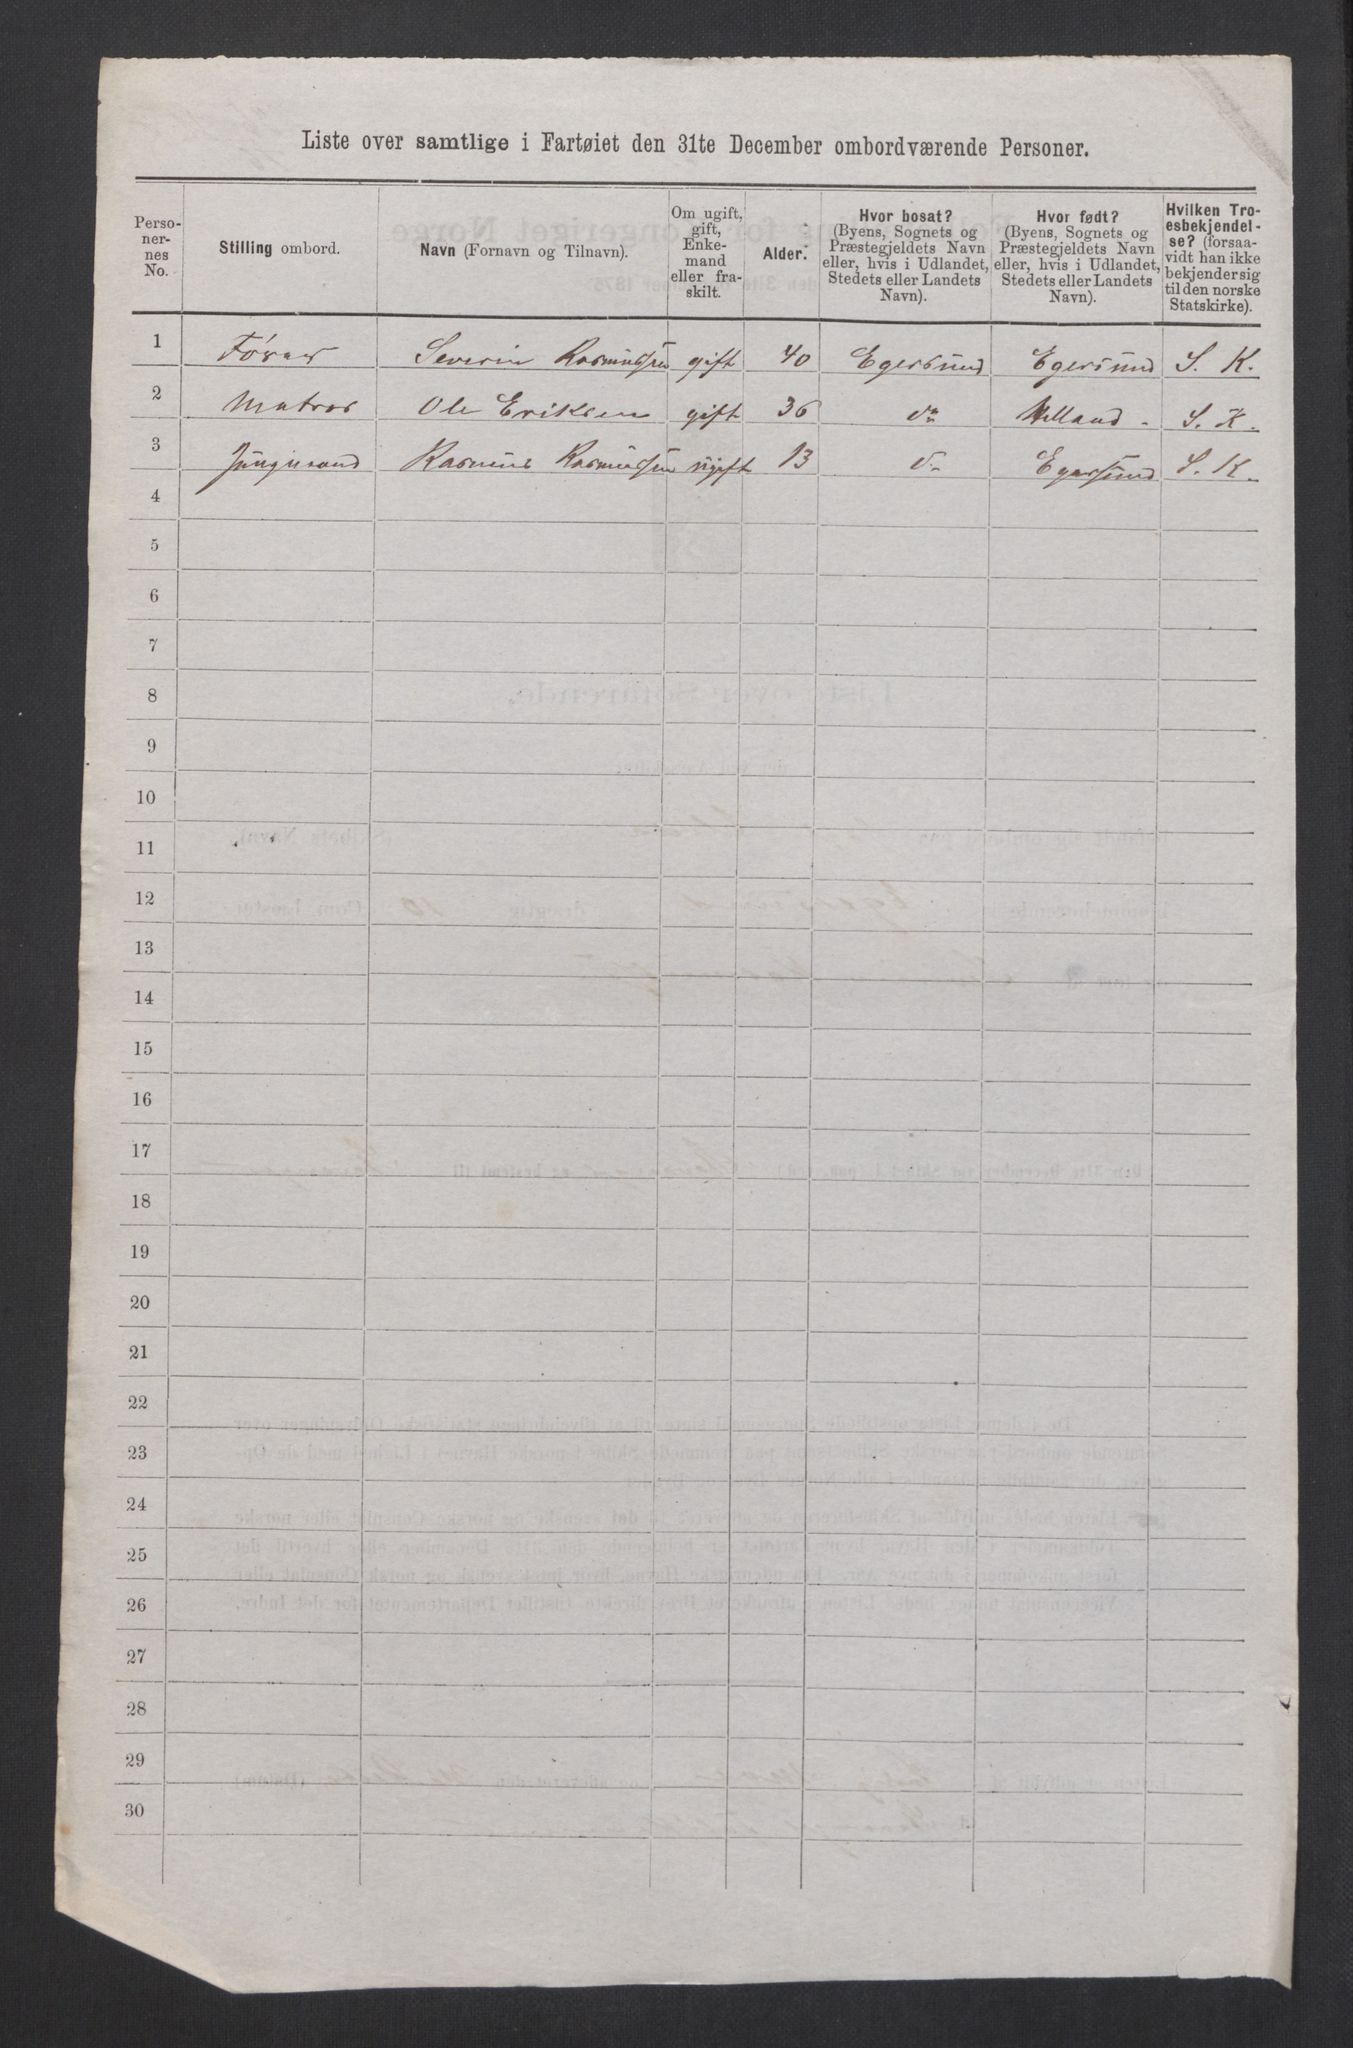 Liste over samtlige i Fartøiet den 31te December ombordværende Personer.
Perso-
ner-
nes
No.
Stilling ombord.
Navn (Fornavn og Tilnavn).
Om ugift,
gift,
Enke-
mand
eller fra-
skilt.
Alder.
Hvor bosat?
(Byens, Sognets og
Præstegjeldets Navn
eller, hvis i Udlandet,
Stedets eller Landets
Navn).
Hvor født?
(Byens, Sognets og
Præstegjeldets Navn
eller, hvis i Udlandet,
Stedets eller Landets
Navn).
Hvilken Tro-
esbekjendel-
se? (forsaa-
vidt han ikke
bekjender sig
til den norske
Statskirke).
1 Fører Severin Rasmussen gift 40 Egersund Egersund S. K.
2 Matros Ole Eriksen gift 36 do Helland S. K.
3 Jungmand Rasmus Rasmussen ugift 13 do Egersund S. K.
4
5
6
7
8
9
10
11
12
13
14
15
16
17
18
19
20
21
22
23
24
25
26
27
28
29
30